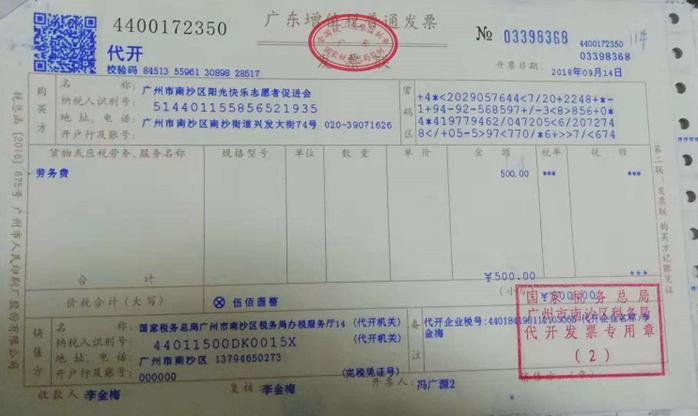 4400172350
广东增值税普通发票
№ 03398368
4400172350
03398368
11#
代开
校验码 84513 55961 30898 28517
开票日期: 2018年09月14日
购买方
名 称: 广州市南沙区阳光快乐志愿者促进会
纳税人识别号: 514401155856521935
地 址、电 话: 广州市南沙区南沙街道兴发大街74号 020-39071626
开户行及账号:
密码区
+4*<2029057644<7/20+2248+*-
1+94-92-568597+/-3<8>856+0*
4*419779462/047205<6/207274
8</+05-5>97<770/*6+>>7/<674
货物或应税劳务、服务名称 规格型号 单位 数量 单价 金额 税率 税额
劳务费 500.00 *** ***
合 计 ¥500.00 ***
价税合计(大写) ⊗ 伍佰圆整 (小写) ¥500.00
销售方
名 称: 国家税务总局广州市南沙区税务局办税服务厅14 (代开机关)
纳税人识别号: 44011500DK0015X (代开机关)
地 址、电 话: 广州市南沙区 13794650273
开户行及账号: 000000 (完税凭证号)
备注
代开企业税号: 代开企业名称:李
金梅
收款人 李金梅 复核 李金梅 开票人: 冯广源2
国家税务总局
广州市南沙区税务局
代开发票专用章
(2)
税总函〔2016〕675号 广州市人民印刷厂股份有限公司
第二联:发票联 购买方记账凭证